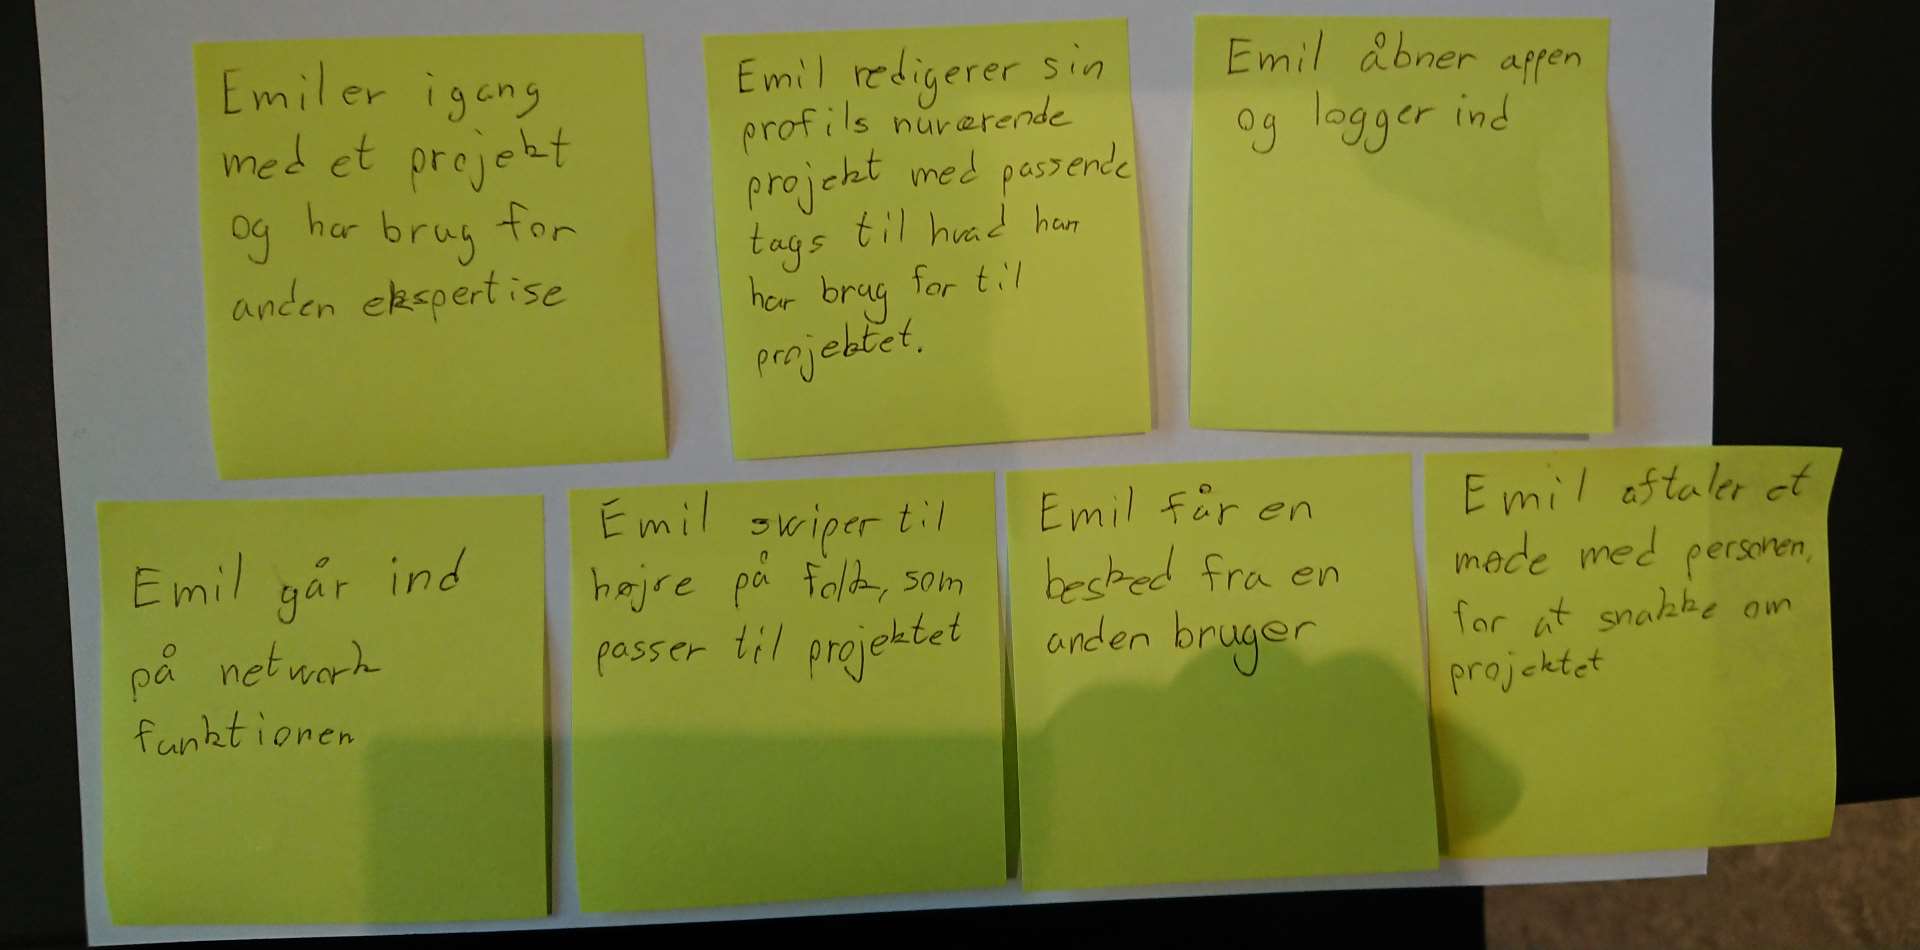 Emil er igang
med et projekt
og har brug for
anden ekspertise
Emil redigerer sin
profils nuværende
projekt med passende
tags til hvad han
har brug for til
projektet.
Emil åbner appen
og logger ind
Emil går ind
på network
funktionen
Emil swiper til
højre på folk, som
passer til projektet
Emil får en
besked fra en
anden bruger
Emil aftaler et
møde med personen,
for at snakke om
projektet